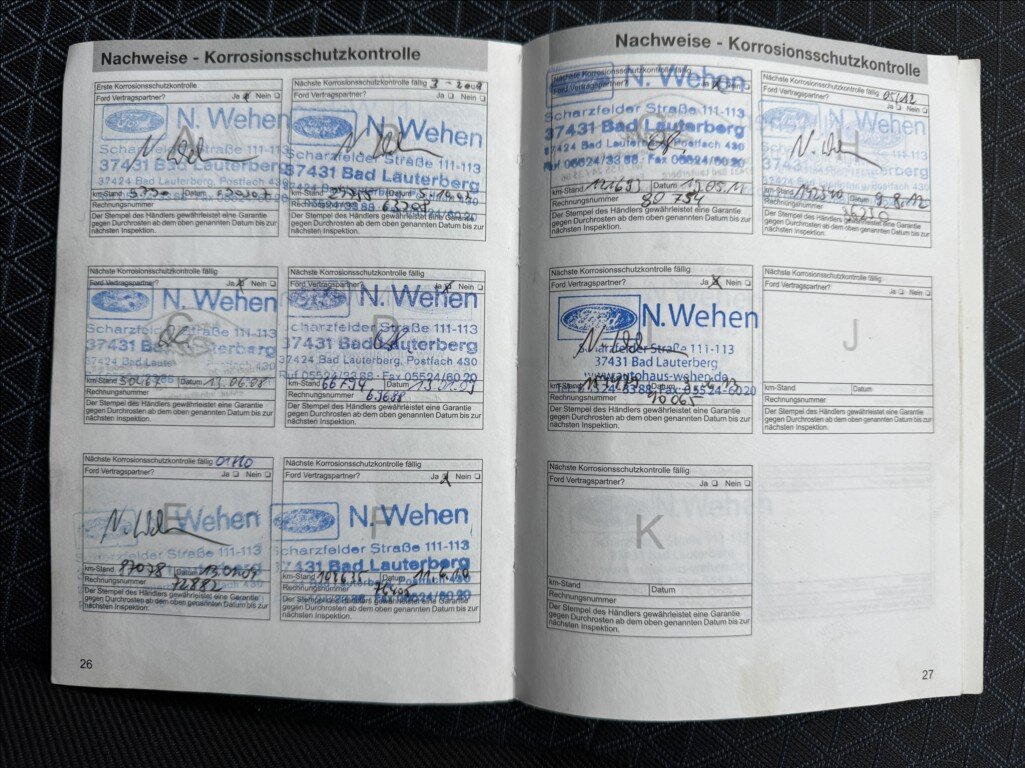 Nachweise - Korrosionsschutzkontrolle
Erste Korrosionsschutzkontrolle
Ford Vertragspartner? Ja Nein
A
Ford
N. Wehen
Scharzfelder Straße 111-113
37431 Bad Lauterberg
37424 Bad Lauterberg, Postfach 430
km-Stand Datum
Rechnungsnummer
Der Stempel des Händlers gewährleistet eine Garantie
gegen Durchrosten ab dem oben genannten Datum bis zur
nächsten Inspektion.
Nächste Korrosionsschutzkontrolle fällig
Ford Vertragspartner? Ja Nein
N. Wehen
Scharzfelder Straße 111-113
37431 Bad Lauterberg
km-Stand Datum
Rechnungsnummer 63208
Der Stempel des Händlers gewährleistet eine Garantie
gegen Durchrosten ab dem oben genannten Datum bis zur
nächsten Inspektion.
Nächste Korrosionsschutzkontrolle fällig
Ford Vertragspartner? Ja Nein
C
N. Wehen
Scharzfelder Straße 111-113
37431 Bad Lauterberg
37424 Bad Lauterberg
km-Stand 50467 Datum 13.06.08
Rechnungsnummer
Der Stempel des Händlers gewährleistet eine Garantie
gegen Durchrosten ab dem oben genannten Datum bis zur
nächsten Inspektion.
Nächste Korrosionsschutzkontrolle fällig
Ford Vertragspartner? Ja Nein
D
N. Wehen
Scharzfelder Straße 111-113
37431 Bad Lauterberg
37424 Bad Lauterberg, Postfach 430
Fax 05524/60 20
km-Stand 66794 Datum 13.01.09
Rechnungsnummer
Der Stempel des Händlers gewährleistet eine Garantie
gegen Durchrosten ab dem oben genannten Datum bis zur
nächsten Inspektion.
Nächste Korrosionsschutzkontrolle fällig 01/10
Ford Vertragspartner? Ja Nein
E
Wehen
Scharzfelder Straße 111-113
37431 Bad Lauterberg
km-Stand 87078 Datum
Rechnungsnummer 72882
Der Stempel des Händlers gewährleistet eine Garantie
gegen Durchrosten ab dem oben genannten Datum bis zur
nächsten Inspektion.
Nächste Korrosionsschutzkontrolle fällig
Ford Vertragspartner? Ja Nein
F
N. Wehen
Scharzfelder Straße 111-113
37431 Bad Lauterberg
km-Stand Datum
Rechnungsnummer
Der Stempel des Händlers gewährleistet eine Garantie
gegen Durchrosten ab dem oben genannten Datum bis zur
nächsten Inspektion.
26
Nachweise - Korrosionsschutzkontrolle
Nächste Korrosionsschutzkontrolle fällig
Ford Vertragspartner? Ja Nein
G
N. Wehen
Scharzfelder Straße 111-113
37431 Bad Lauterberg
Postfach 430
Ruf 05524/33 88 · Fax 05524/60 20
km-Stand 121693 Datum 19.05.11
Rechnungsnummer 80754
Der Stempel des Händlers gewährleistet eine Garantie
gegen Durchrosten ab dem oben genannten Datum bis zur
nächsten Inspektion.
Nächste Korrosionsschutzkontrolle fällig 05/12
Ford Vertragspartner? Ja Nein
H
km-Stand Datum 9.8.12
Rechnungsnummer
Der Stempel des Händlers gewährleistet eine Garantie
gegen Durchrosten ab dem oben genannten Datum bis zur
nächsten Inspektion.
Nächste Korrosionsschutzkontrolle fällig
Ford Vertragspartner? Ja Nein
I
N. Wehen
Scharzfelder Straße 111-113
37431 Bad Lauterberg
www.autohaus-wehen.de
05524-6020
km-Stand Datum
Rechnungsnummer 90065
Der Stempel des Händlers gewährleistet eine Garantie
gegen Durchrosten ab dem oben genannten Datum bis zur
nächsten Inspektion.
Nächste Korrosionsschutzkontrolle fällig
Ford Vertragspartner? Ja Nein
J
km-Stand Datum
Rechnungsnummer
Der Stempel des Händlers gewährleistet eine Garantie
gegen Durchrosten ab dem oben genannten Datum bis zur
nächsten Inspektion.
Nächste Korrosionsschutzkontrolle fällig
Ford Vertragspartner? Ja Nein
K
km-Stand Datum
Rechnungsnummer
Der Stempel des Händlers gewährleistet eine Garantie
gegen Durchrosten ab dem oben genannten Datum bis zur
nächsten Inspektion.
27